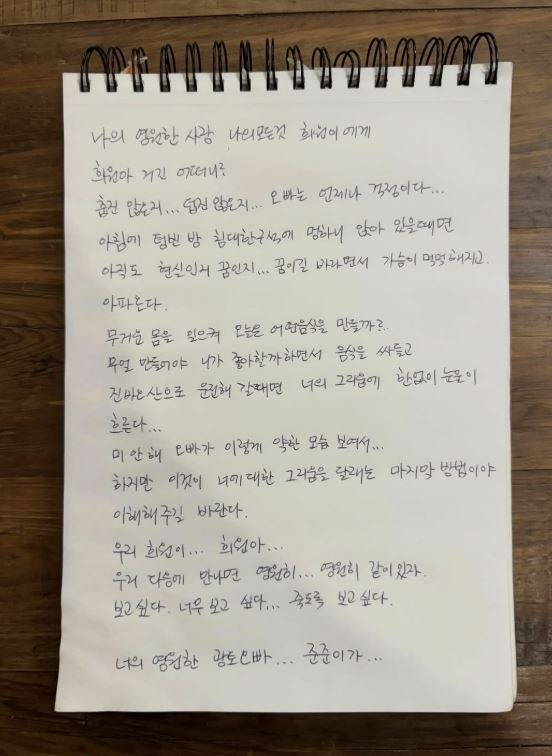 나의 영원한 사랑 나의모든것 희원이에게
희원아 거긴 어떠니?
춥진 않은지... 덥진 않은지... 오빠는 언제나 걱정이다...
아침에 텅빈 방 침대한구석에 멍하니 앉아 있을때면
아직도 현실인지 꿈인지... 꿈이길 바라면서 가슴이 먹먹해지고.
아파온다.
무거운 몸을 일으켜 오늘은 어떤음식을 만들까?..
무얼 만들어야 니가 좋아할까하면서 음식을 싸들고
진바위산으로 운전해 갈때면 너의 그리움에 한없이 눈물이
흐른다...
미안해 오빠가 이렇게 약한 모습 보여서...
하지만 이것이 너에대한 그리움을 달래는 마지막 방법이야
이해해주길 바란다.
우리 희원이... 희원아...
우리 다음에 만나면 영원히... 영원히 같이있자.
보고싶다. 너무 보고 싶다... 죽도록 보고싶다.
너의 영원한 광토오빠... 준준이가...